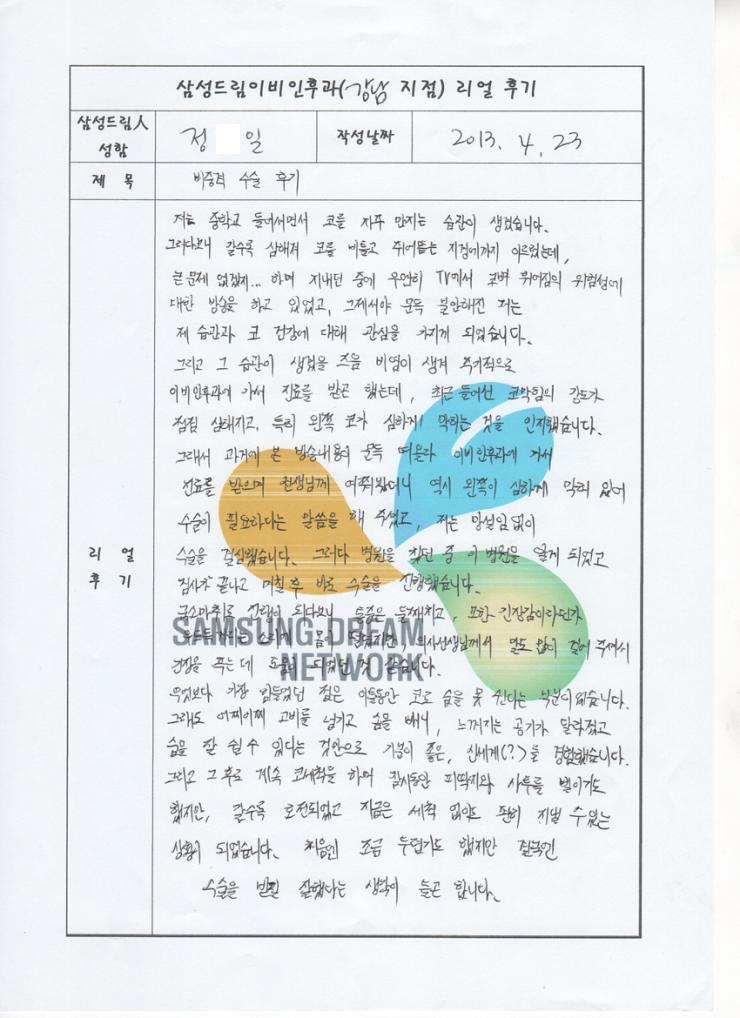 삼성드림이비인후과(강남 지점) 리얼 후기
삼성드림人 성함
정 일
작성날짜
2013. 4. 23
제 목
비중격 수술 후기
리 얼 후 기
저는 중학교 들어서면서 코를 자주 만지는 습관이 생겼습니다.
그러다보니 갈수록 심해져 코를 비틀고 쥐어뜯는 지경에까지 이르렀는데,
큰 문제 없겠지... 하며 지내던 중에 우연히 TV에서 코벽 휘어짐의 위험성에
대한 방송을 하고 있었고, 그제서야 문득 불안해진 저는
제 습관과 코 건강에 대해 관심을 가지게 되었습니다.
그리고 그 습관이 생겼을 즈음 비염이 생겨 주기적으로
이비인후과에 가서 진료를 받곤 했는데, 최근 들어선 코막힘의 강도가
점점 심해지고, 특히 왼쪽 코가 심하게 막히는 것을 인지했습니다.
그래서 과거에 본 방송내용이 문득 떠올라 이비인후과에 가서
진료를 받으며 선생님께 여쭤봤더니 역시 왼쪽이 심하게 막혀 있어
수술이 필요하다는 말씀을 해 주셨고, 저는 망설임없이
수술을 결심했습니다. 그러다 병원을 찾던 중 이 병원을 알게 되었고
검사가 끝나고 며칠 후 바로 수술을 진행했습니다.
국소마취로 진행이 되다보니 통증은 둘째치고, 또한 긴장감이라던가
소리에 몸이 의사선생님께서 말도 많이 걸어 주셔서
긴장을 푸는 데 도움이 되었던 것 같습니다.
무엇보다 가장 힘들었던 점은 이틀동안 코로 숨을 못 쉰다는 부분이었습니다.
그래도 어찌어찌 고비를 넘기고 솜을 빼니, 느껴지는 공기가 달라졌고
숨을 잘 쉴 수 있다는 것만으로 기분이 좋은, 신세계(?)를 경험했습니다.
그리고 그 후로 계속 코세척을 하며 잠시동안 피딱지와 사투를 벌이기도
했지만, 갈수록 호전되었고 지금은 세척 없이도 편히 지낼 수 있는
상황이 되었습니다. 처음엔 조금 두렵기도 했지만 결국엔
수술을 받길 잘했다는 생각이 들곤 합니다.
SAMSUNG DREAM
NETWORK